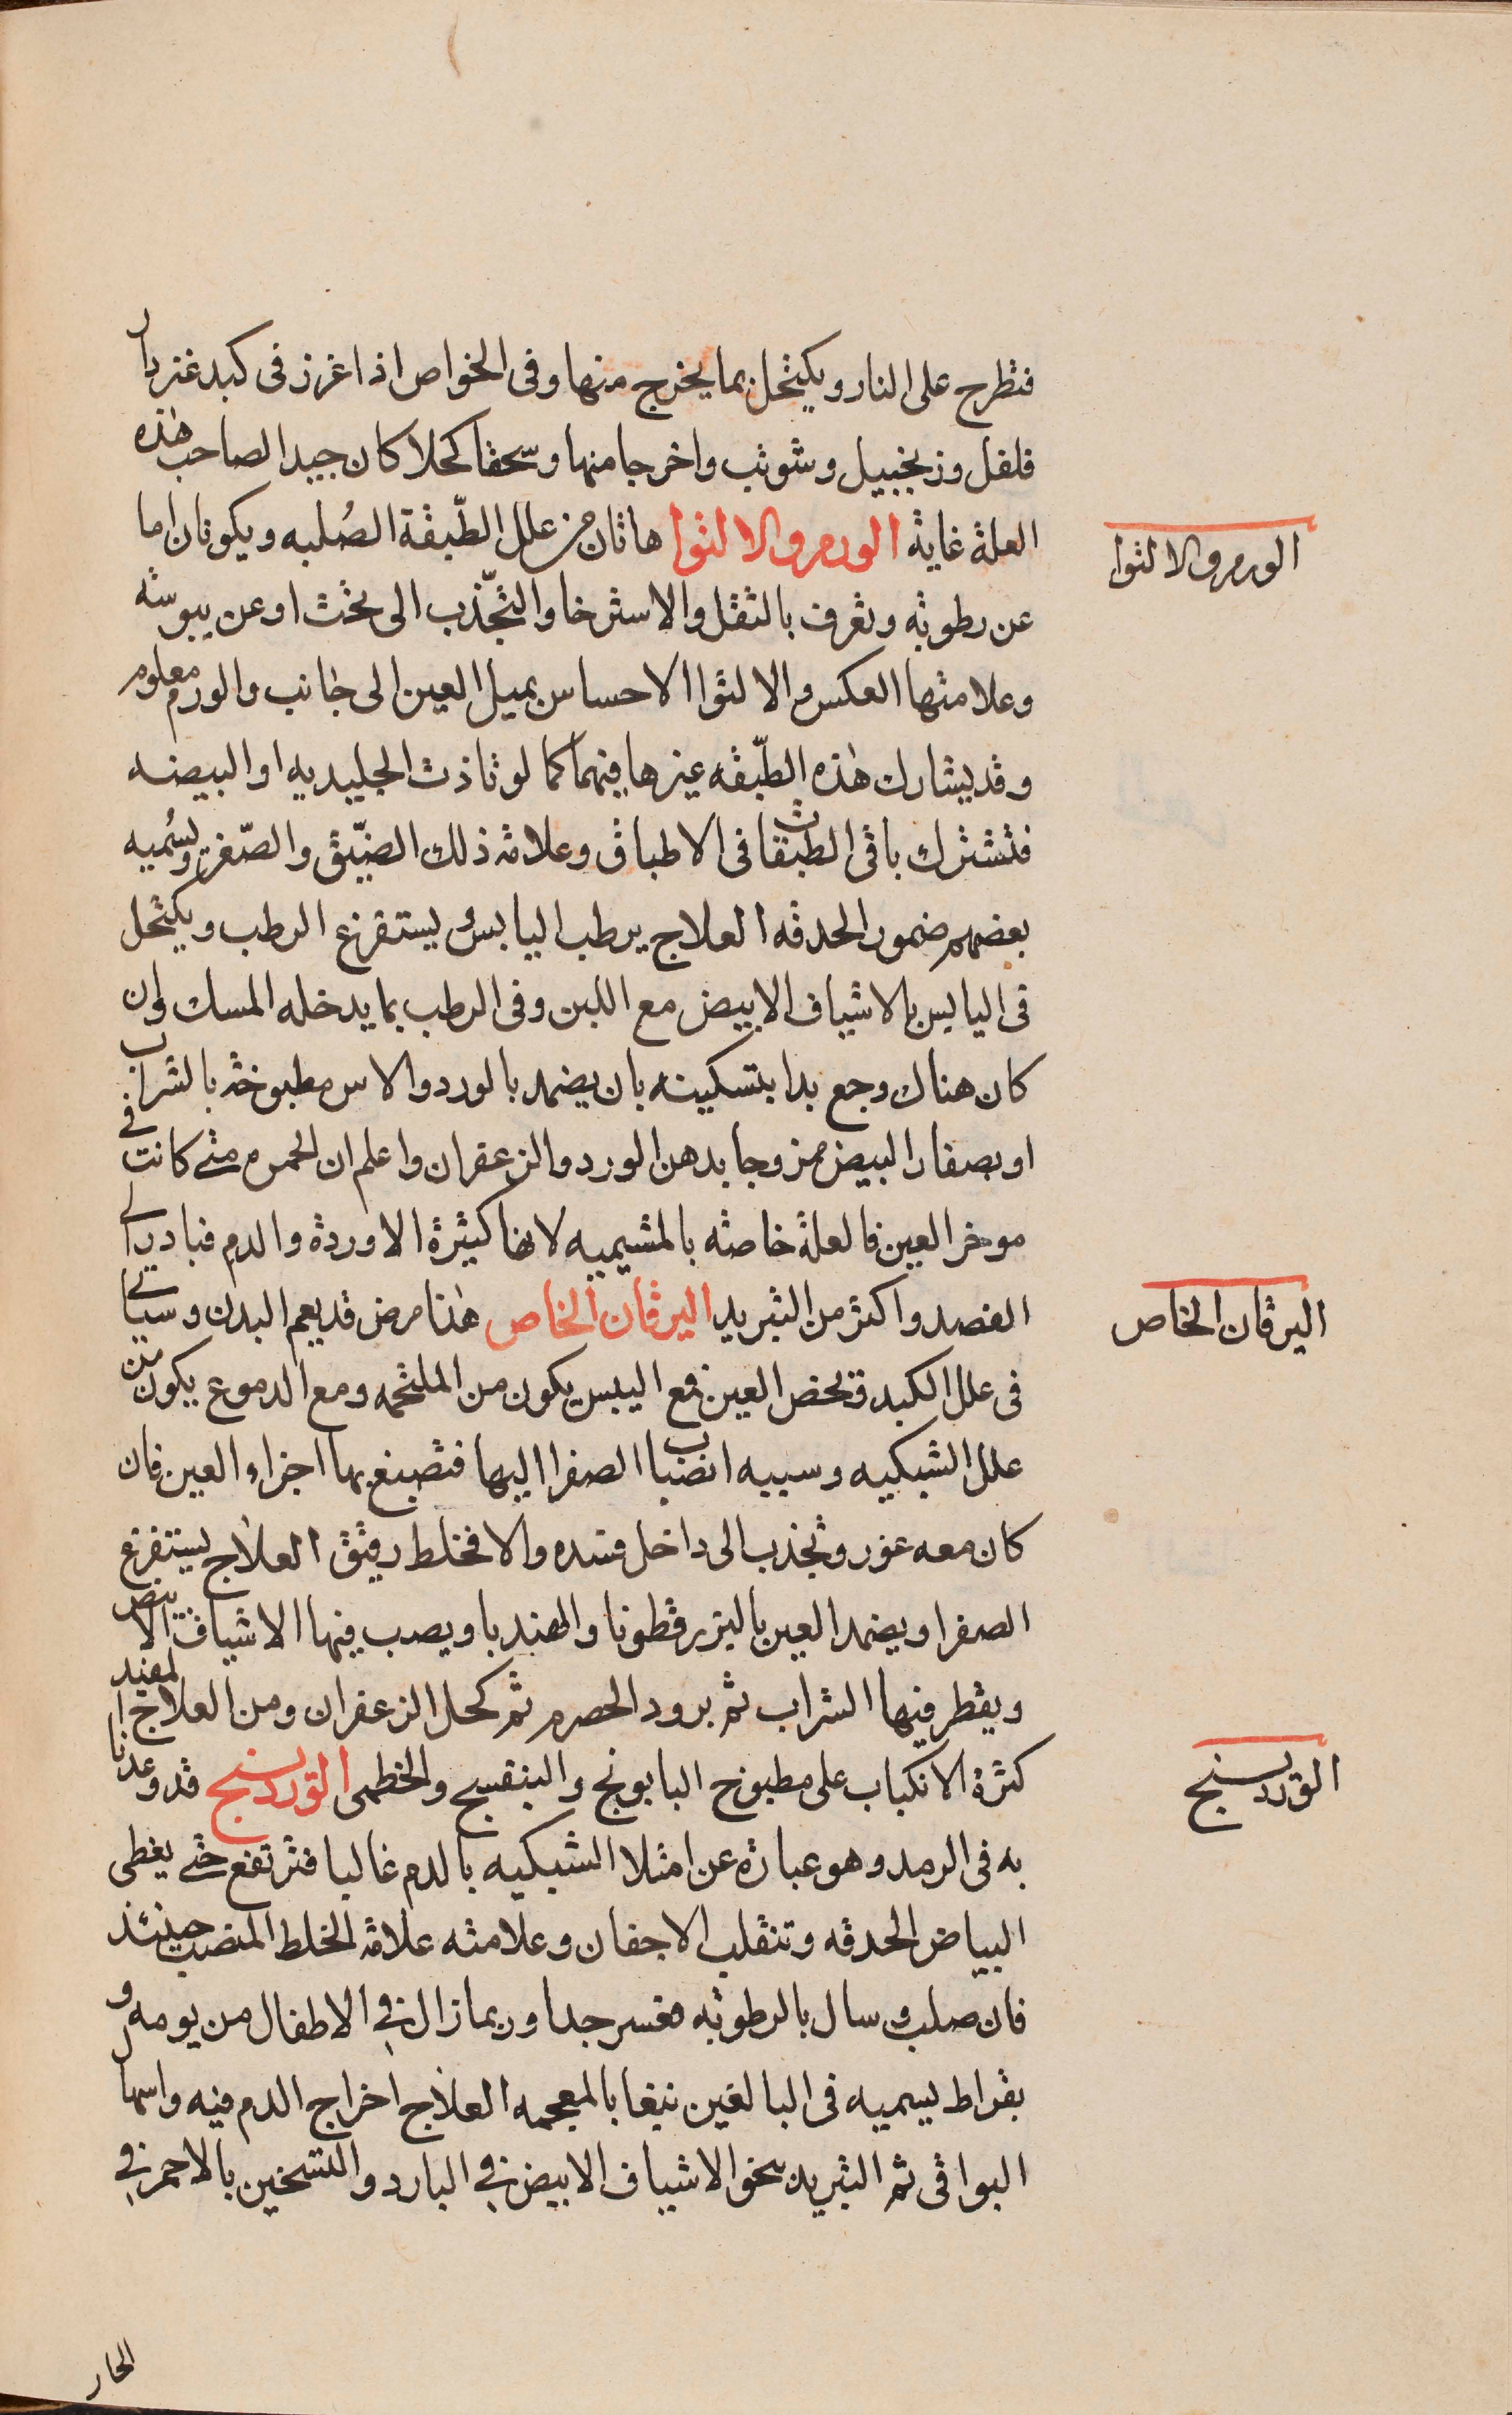 فتطرح على النار ويكتحل بما يخرج منها وفى الخواص اذا غرز فى كبد عنز دار
فلفل وزنجبيل وشويت واخرجا منها وسحقا كحلا كان جيدا لصاحب هذه
العلة غاية الورم والالتوا هاتان من علل الطبقة الصُلبه ويكونان اما
الورم والالتوا
عن رطوبه وتعرف بالثقل والاسترخا والتجّذب الى تحت او عن يبوسه
وعلامتها العكس والالتوا الاحساس بميل العين الى جانب والورم معلوم
وقد يشارك هذه الطّبقه غيرها فيهما كما لو تاذت الجليديه او البيضه
فتشترك باقى الطبقات فى الاطباق وعلامة ذلك الضّيق والصّغر وتسُميه
بعضهم ضمور الحدقه العلاج يرطب اليابس ويستفرغ الرطب ويكتحل
فى اليابس بالاشياف الابيض مع اللبن وفى الرطب بما يدخله المسك وان
كان هناك وجع بدا بتسكينه بان يضمد بالورد والاس مطبوخة بالشراب
او بصفار البيض ممزوجا بدهن الورد والزعفران واعلم ان الحمره متى كانت فى
موخر العين فالعلة خاصته بالمشيميه لانها كثيرة الاوردة والدم فبادر الى
الفصد واكثر من التبريد اليرقان الخاص هذا مرض قد يعم البدن وسياتى
اليرقان الخاص
فى علل الكبد وقد يخص العين فمع اليبس يكون من الملتحمه ومع الدموع يكون من
علل الشبكيه وسببه انضباب الصفرا اليها فتصبغ بها اجزاء العين فان
كان معه غور وتجذب الى داخل فسده والا فخلط رقيق العلاج يستفرغ
الصفرا ويضمد العين بالبزرقطونا والهندبا ويصب فيها الاشياف الابيض
ويقطر فيها الشراب ثم برود الحصرم ثم كحل الزعفران ومن العلاج المفيد
كثرة الانكباب على مطبوخ البابونج والبنفسج والخطمى الوردينج قد وعدنا
الوردينج
به فى الرمد وهو عبارة عن امتلا الشبكيه بالدم غالبا فترتفع حتى يغطى
البياض الحدقه وتنقلب الاجفان وعلامته علامة الخلط المنصب حينئذ
فان صلب وسال بالرطوبه فعسر جدا وربما زال فى الاطفال من يومه و
بقراط يسميه فى البالغين نبغا بالمعجمه العلاج اخراج الدم فيه واسهال
البواقى ثم التبريد بنحو الاشياف الابيض فى البارد والتسخين بالاحمر فى
الحار